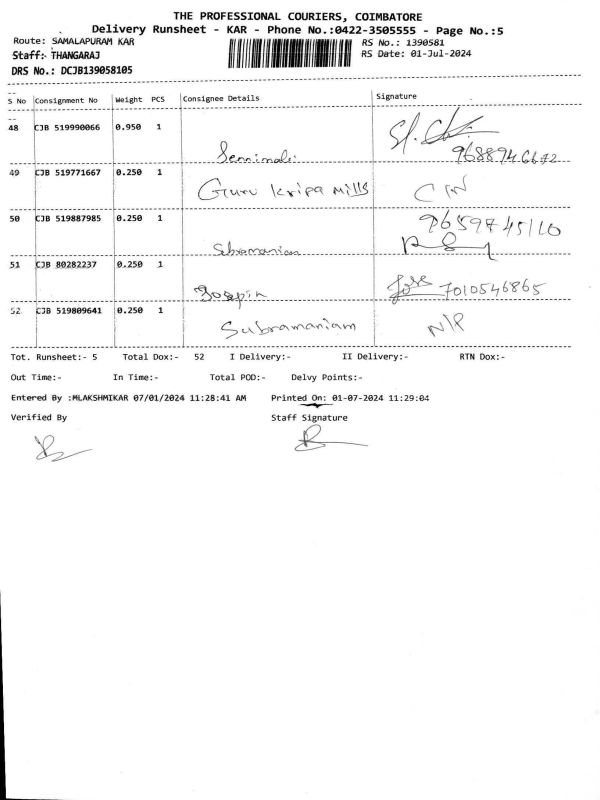 THE PROFESSIONAL COURIERS, COIMBATORE
Delivery Runsheet - KAR - Phone No.:0422-3505555 - Page No.:5
Route: SAMALAPURAM KAR RS No.: 1390581
Staff:- THANGARAJ RS Date: 01-Jul-2024
DRS No.: DCJB139058105
S No Consignment No Weight PCS Consignee Details Signature
48 CJB 519990066 0.950 1
49 CJB 519771667 0.250 1 Guru Kripa Mills
50 CJB 519887985 0.250 1
Subramaniam
51 CJB 80282237 0.250 1
Josepin 7010546865
52 CJB 519809641 0.250 1 Subramaniam N/P
Tot. Runsheet:- 5 Total Dox:- 52 I Delivery:- II Delivery:- RTN Dox:-
Out Time:- In Time:- Total POD:- Delvy Points:-
Entered By :MLAKSHMIKAR 07/01/2024 11:28:41 AM Printed On: 01-07-2024 11:29:04
Verified By Staff Signature